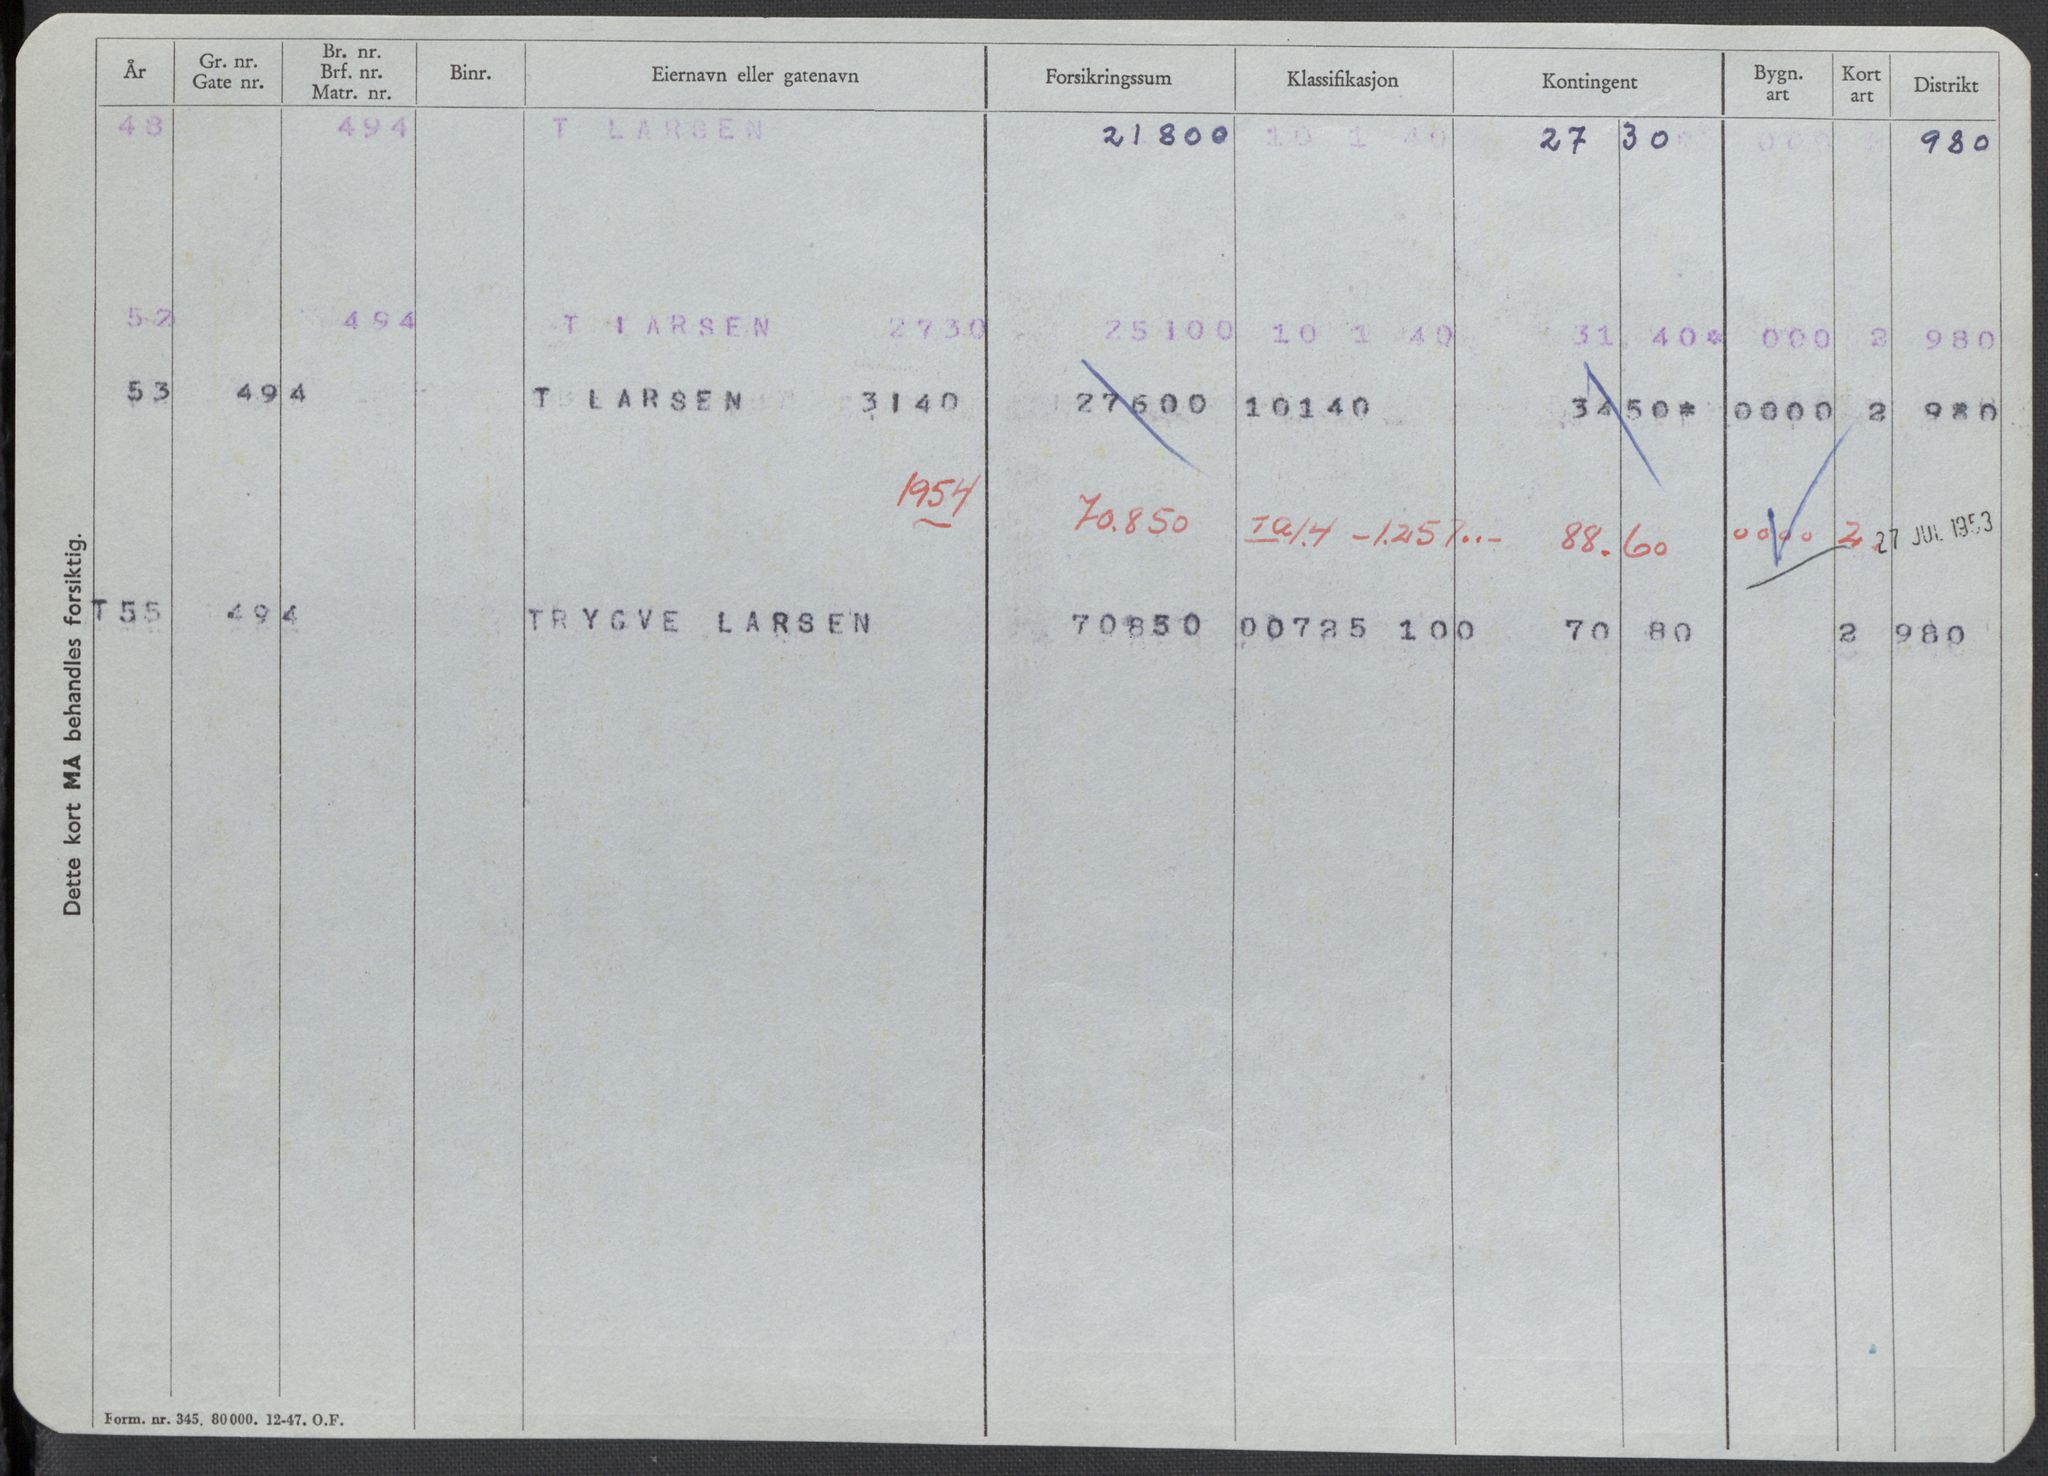 År Gr. nr. Gate nr. Br. nr. Brf. nr. Matr. nr. Binr. Eiernavn eller gatenavn Forsikringssum Klassifikasjon Kontingent Bygn. art Kort art Distrikt
48 494 T LARSEN 21800 10 1 40 27 30 000 2 980
52 494 T LARSEN 2730 25100 10 1 40 31 40* 000 2 980
53 494 T LARSEN 3140 27600 10140 3450* 0000 2 980
1954 70.850 88.60 0000 2. 27 JUL 1953
T55 494 TRYGVE LARSEN 70850 00725 100 70 80 2 980
Dette kort MÅ behandles forsiktig.
Form. nr. 345. 80000. 12-47. O.F.